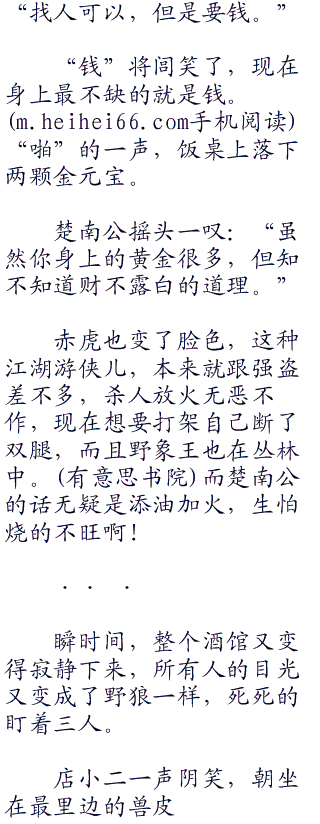 “找人可以，但是要钱。”
“钱”将闾笑了，现在
身上最不缺的就是钱。
(m.heihei66.com手机阅读)
“啪”的一声，饭桌上落下
两颗金元宝。
楚南公摇头一叹：“虽
然你身上的黄金很多，但知
不知道财不露白的道理。”
赤虎也变了脸色，这种
江湖游侠儿，本来就跟强盗
差不多，杀人放火无恶不
作，现在想要打架自己断了
双腿，而且野象王也在丛林
中。(有意思书院)而楚南公
的话无疑是添油加火，生怕
烧的不旺啊！
．．．
瞬时间，整个酒馆又变
得寂静下来，所有人的目光
又变成了野狼一样，死死的
盯着三人。
店小二一声阴笑，朝坐
在最里边的兽皮